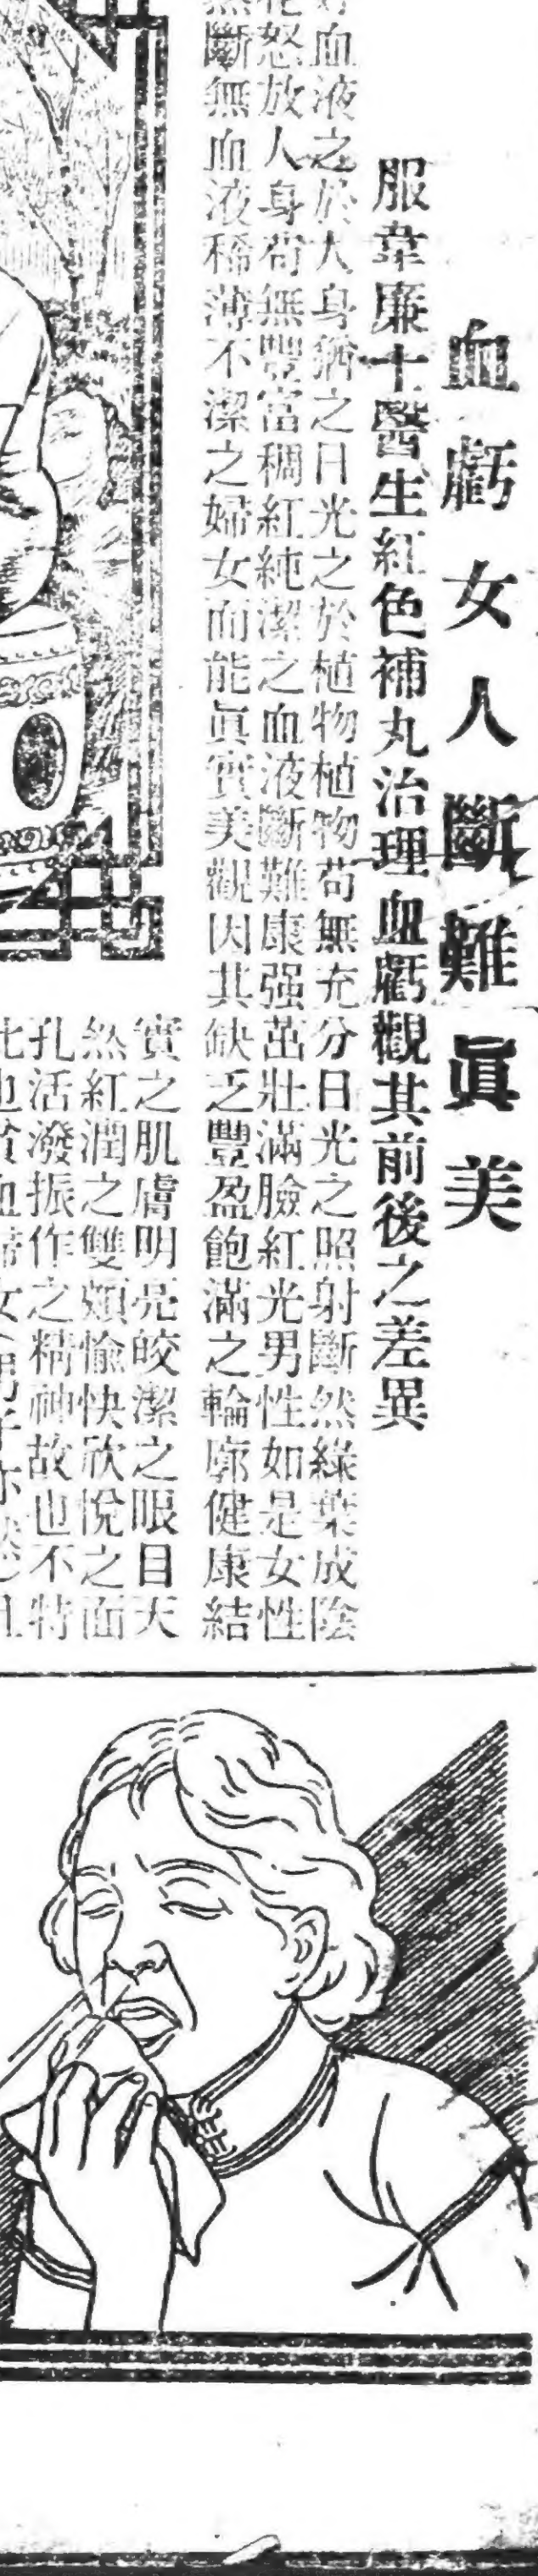 血虧女人斷難眞美
服韋廉士醫生紅色補丸治理血虧觀其前後之差異
血液之於人身猶之日光之於植物植物苟無充分日光之照射斷然綠葉成陰
怒放人身苟無豐富稠紅純潔之血液斷難康强茁壯滿臉紅光男性如是女性
斷無血液稀薄不潔之婦女而能眞實美觀因其缺乏豐盈飽滿之輪廓健康結
實之肌膚明亮皎潔之眼目天
然紅潤之雙頰愉快欣悅之面
孔活潑振作之精神故也不特